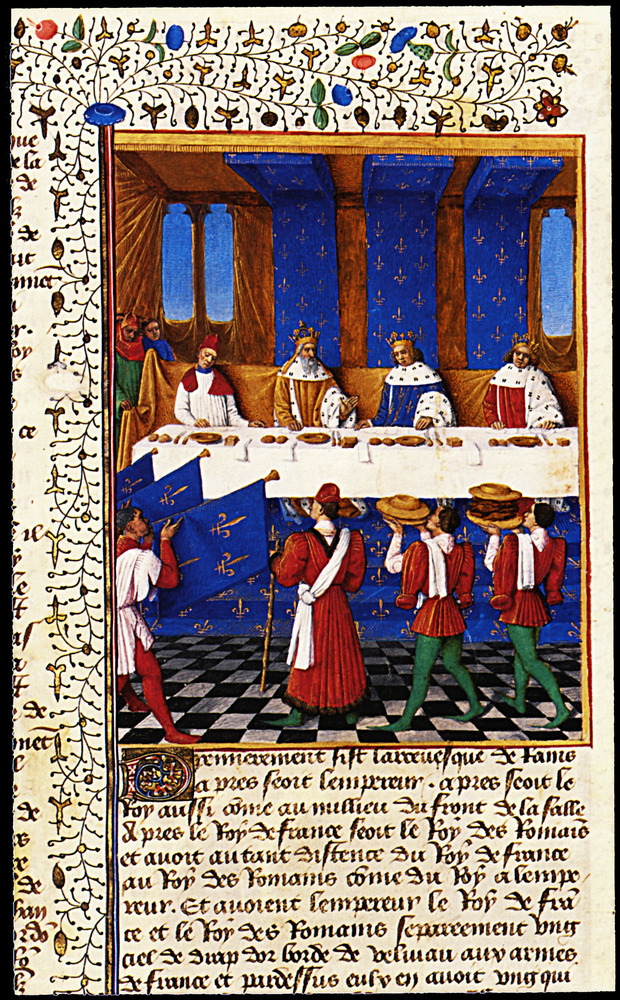 Premierement sist larcevesque de Rains
apres seoit lempereur. apres seoit le
Roy aussi come au millieu du front de la salle
Apres le Roy de france seoit le Roy des Romais
et avoit autant distence du Roy de france
au Roy des Romanis come du Roy a lempe
reur. Et avoient lempereur le Roy de fra
ce et le Roy des Romanis separeement ung
ciel de drap dor borde de veluiau aux armes
de france et pardessus eulx en avoit ung qui
de la
de
de
ce
il
de
de
de